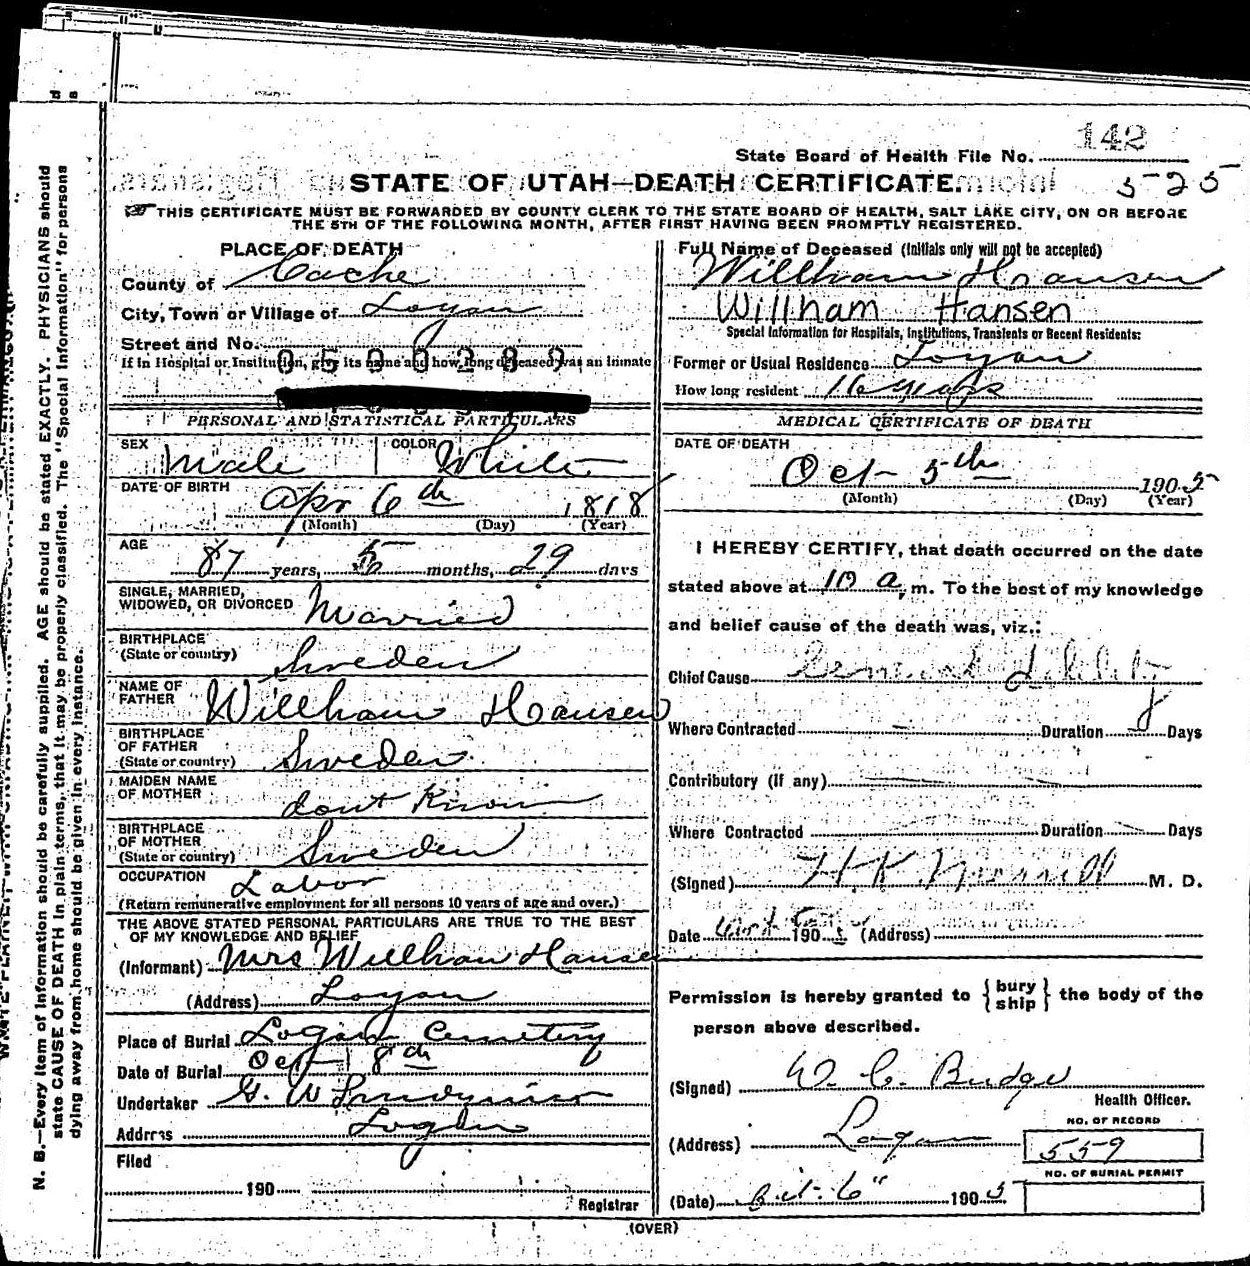 142
State Board of Health File No.
525
STATE OF UTAH—DEATH CERTIFICATE.
THIS CERTIFICATE MUST BE FORWARDED BY COUNTY CLERK TO THE STATE BOARD OF HEALTH, SALT LAKE CITY, ON OR BEFORE
THE 5TH OF THE FOLLOWING MONTH, AFTER FIRST HAVING BEEN PROMPTLY REGISTERED.
PLACE OF DEATH
County of Cache
City, Town or Village of Logan
Street and No.
0590289
If in Hospital or Institution, give its name and how long deceased was an inmate
PERSONAL AND STATISTICAL PARTICULARS
SEX Male COLOR White
DATE OF BIRTH Apr 6th 1818
(Month) (Day) (Year)
AGE 87 years, 5 months, 29 days
SINGLE, MARRIED,
WIDOWED, OR DIVORCED Married
BIRTHPLACE
(State or country) Sweden
NAME OF
FATHER Willham Hansen
BIRTHPLACE
OF FATHER
(State or country) Sweden
MAIDEN NAME
OF MOTHER dont Know
BIRTHPLACE
OF MOTHER
(State or country) Sweden
OCCUPATION Labor
(Return remunerative employment for all persons 10 years of age and over.)
THE ABOVE STATED PERSONAL PARTICULARS ARE TRUE TO THE BEST
OF MY KNOWLEDGE AND BELIEF
(Informant) Mrs Willham Hansen
(Address) Logan
Place of Burial Logan Cemetery
Date of Burial Oct 8th
Undertaker G. W
Address Logan
Filed
190
Registrar
Full Name of Deceased (Initials only will not be accepted)
Willham Hansen
Willham Hansen
Special Information for Hospitals, Institutions, Transients or Recent Residents:
Former or Usual Residence Logan
How long resident 16 years
MEDICAL CERTIFICATE OF DEATH
DATE OF DEATH
Oct 5th 1905
(Month) (Day) (Year)
I HEREBY CERTIFY, that death occurred on the date
stated above at 10 a, m. To the best of my knowledge
and belief cause of the death was, viz.:
Chief Cause General debility
Where Contracted Duration Days
Contributory (if any)
Where Contracted Duration Days
(Signed) H. K. Merrill M. D.
Date Oct 5 1905 (Address)
Permission is hereby granted to { bury ship } the body of the
person above described.
(Signed) W. C. Budge
Health Officer.
(Address) Logan
NO. OF RECORD
559
NO. OF BURIAL PERMIT
(Date) Oct. 6" 1905
(OVER)
N. B.—Every item of information should be carefully supplied. AGE should be stated EXACTLY. PHYSICIANS should
state CAUSE OF DEATH in plain terms, that it may be properly classified. The "Special Information" for persons
dying away from home should be given in every instance.